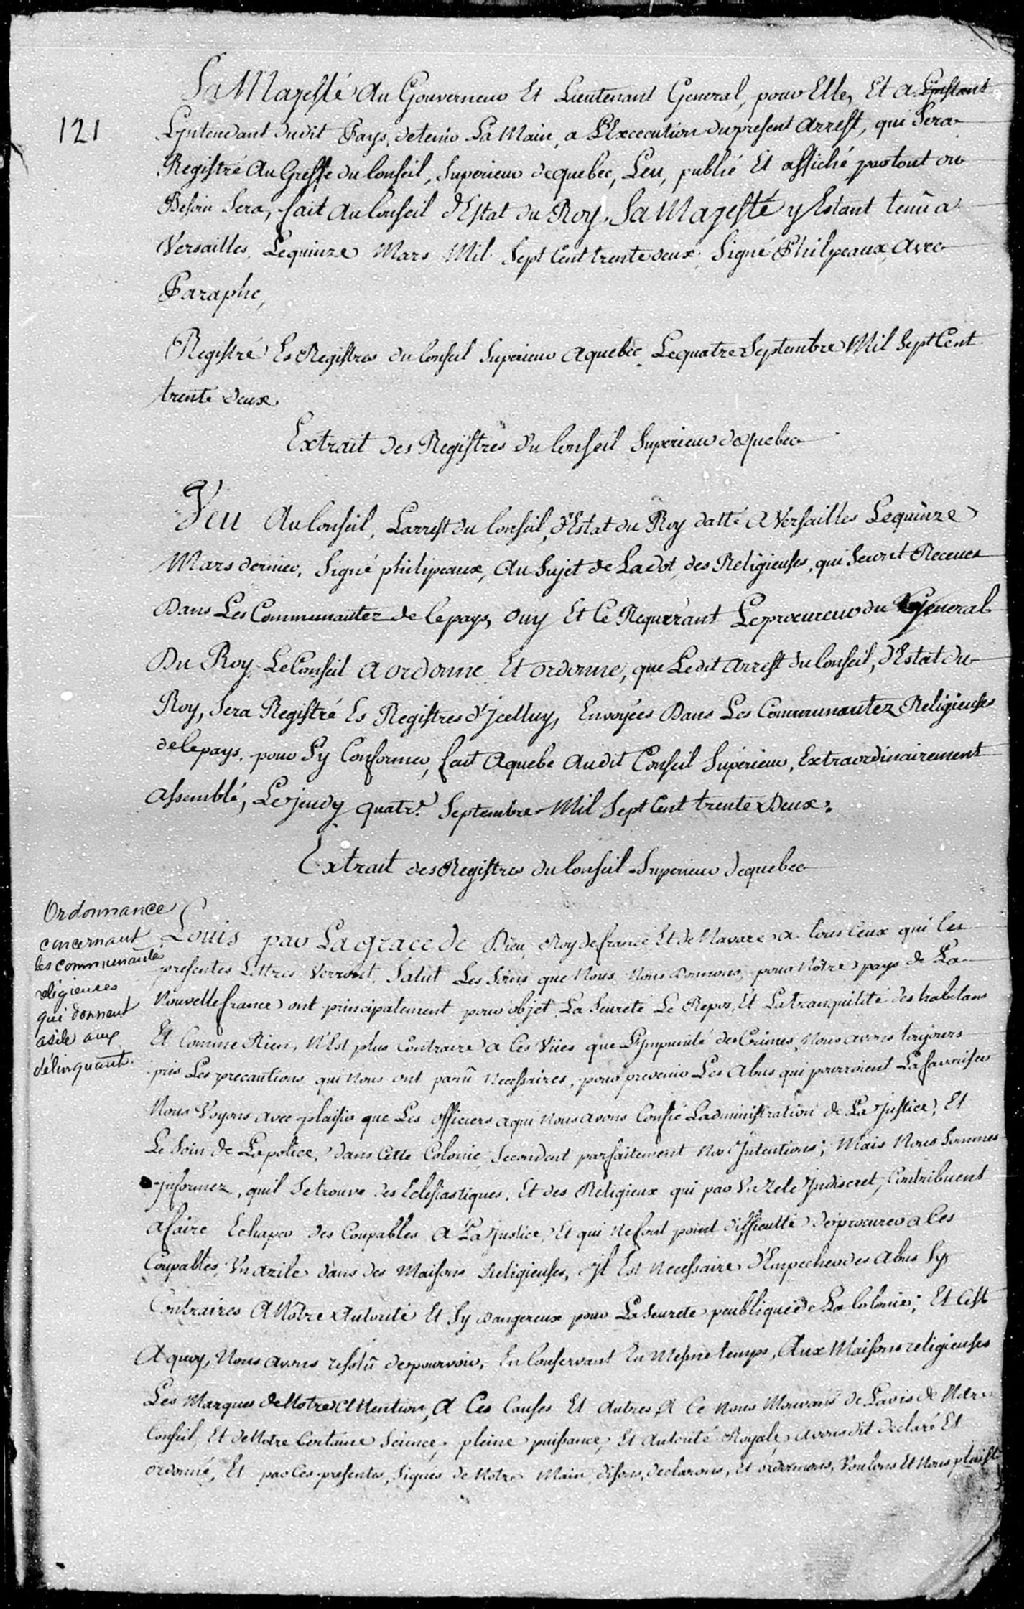 121
Sa Majesté au Gouverneur Et Lieutenant General, pour Elle, Et a
Lyntendant dudit Pays, detenir La Main, a L'Excecution dupresent Arrest, que Sera
Registré Au Greffe du Conseil, Superieur dequebec, Leu, publié Et affiché partout ou
Besoin Sera, fait au Conseil d'Estat du Roy, Sa Majesté y Estant tenû a
Versailles, Lequinze Mars Mil Sept Cent trente deux, Signé Philpeaux avec
Paraphe,
Registré Es Registres du Conseil Superieur aquebec, Lequatre Septembre Mil Sept Cent
trente deux
Extrait des Registres du Conseil Superieur dequebec
Veu Au Conseil, Larrest du Conseil, d'Estat du Roy datté a Versailles Lequinze
Mars dernier, Signé philipeaux, Au Sujet de La dot, des Religieuses, qui Seront Receues
Dans Les Communautez de Cepays, ouy Et Ce Requerant Leprocureur du General
Du Roy, Le Conseil a ordonne Et ordonne, que Ledit Arrest du Conseil, d'Estat du
Roy, Sera Registré Es Registres d'Jcelluy, Envoyées Dans Les Communautez Religieuses
de Cepays, pour Sy Conformer, fait Aquebe Audit Conseil Superieur, Extraordinairement
Assemblé, Le jeudy quatre Septembre Mil Sept Cent trente Deux;
Extrait des Registres du Conseil Superieur dequebec
Ordonnance
concernant
les communautés
religieuses
qui donnent
asile aux
délinquants.
Louis par La grace de Dieu, Roy de france Et de Navare a tous Ceux qui Ces
presentes Lettres Verront, Salut Les Soins que Nous, Nous Donnons, pour Nôtre pays de La
Nouvelle france, ont principalement pour objet, La Seureté Le Repos, Et La tranquilité des habitans
Et Comme Rien, N'Est plus Contraire a Ces Vües que L'ynpunité des Crimes, Nous avons toujours
pris Les precautions, qui Nous ont parû Necessaires, pour prevenir Les Abus qui pourroient La favoriser
Nous Voyons avec plaisir que Les officiers aqui Nous avons Confié Ladministration de La Justice, Et
Le Soin de La police, dans Cette Colonie, Secondent parfaitement Nos Jntentions; Mais Nous Sommes
Jnformez, quil Se trouve des Eclesiastiques, Et des Religieux qui par Un Zele Jndiscret, Contribuent
a faire Echaper des Coupables A La Justice, Et qui Ne font point difficulté de procurer a Ces
Coupables, Un azile dans des Maisons Religieuses, Jl Est Necessaire d'Empecher des Abus Sy
Contraires A Nôtre Autorité Et Sy Dangereux pour La Seureté peublique de La Colonie; Et C'est
A quoy, Nous avons resolû de pourvoir, En Conservant En Mesme temps, Aux Maisons religieuses
Les Marques de Notre Attention, A Ces Causes Et Autres A Ce Nous Mouvans de L'avis de Notre
Conseil, Et de Notre Certaine Science, pleine puissance, Et Autorité Royale, avons dit declaré Et
ordonné, Et par Ces presentes, Signés de Notre Main, disons, declarons, Et ordonnons, Voulons Et Nous plaist